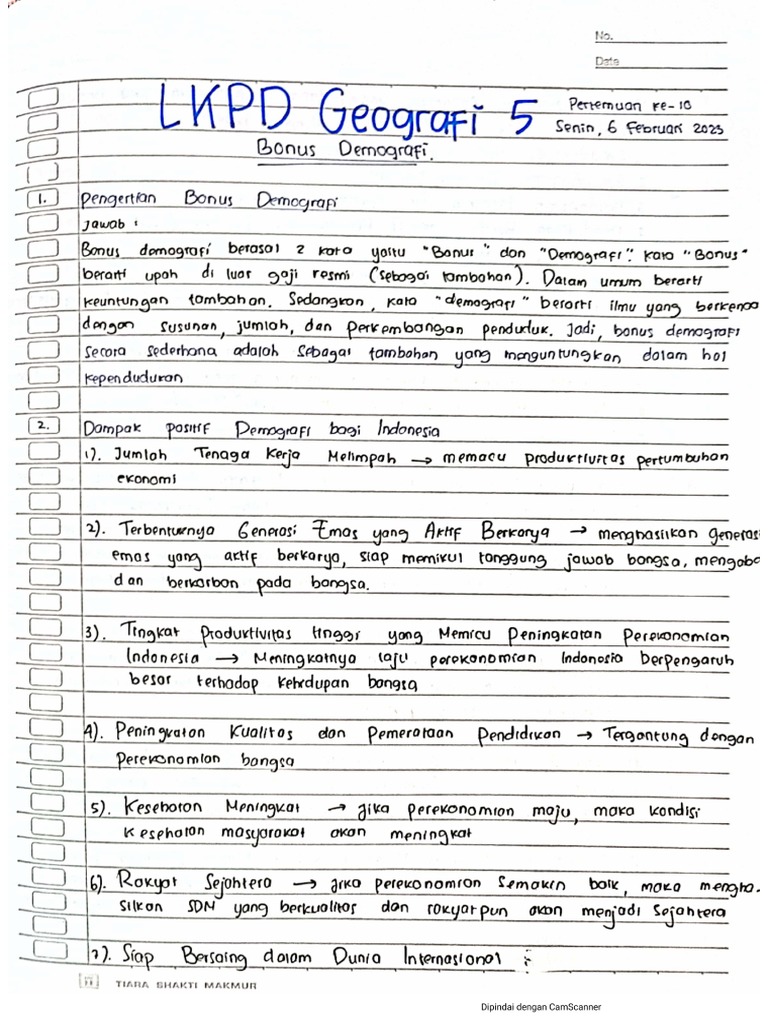 No.
Date
LKPD Geografi 5
Pertemuan ke-10
Senin, 6 Februari 2023
Bonus Demografi.
1. Pengertian Bonus Demografi
Jawab :
Bonus demografi berasal 2 kata yaitu "Bonus" dan "Demografi". Kata "Bonus"
berarti upah di luar gaji resmi (sebagai tambahan). Dalam umum berarti
keuntungan tambahan. Sedangkan, kata "demografi" berarti ilmu yang berkenaa
dengan susunan, jumlah, dan perkembangan penduduk. Jadi, bonus demografi
secara sederhana adalah sebagai tambahan yang menguntungkan dalam hal
kependudukan
2. Dampak positif Demografi bagi Indonesia
1). Jumlah Tenaga Kerja Melimpah → memacu produktivitas pertumbuhan
ekonomi
2). Terbentuknya Generasi Emas yang Aktif Berkarya → menghasilkan generasi
emas yang aktif berkarya, siap memikul tanggung jawab bangsa, mengaba
dan berkorban pada bangsa.
3). Tingkat Produktivitas tinggi yang Memicu Peningkatan Perekonomian
Indonesia → Meningkatnya laju perekonomian Indonesia berpengaruh
besar terhadap kehidupan bangsa
4). Peningkatan Kualitas dan Pemerataan Pendidikan → Tergantung dengan
Perekonomian bangsa
5). Kesehatan Meningkat → Jika perekonomian maju, maka kondisi
kesehatan masyarakat akan meningkat
6). Rakyat Sejahtera → Jika perekonomian semakin baik, maka mengha-
silkan SDN yang berkualitas dan rakyatpun akan menjadi sejahtera
7). Siap Bersaing dalam Dunia Internasional :
TIARA SHAKTI MAKMUR
Dipindai dengan CamScanner